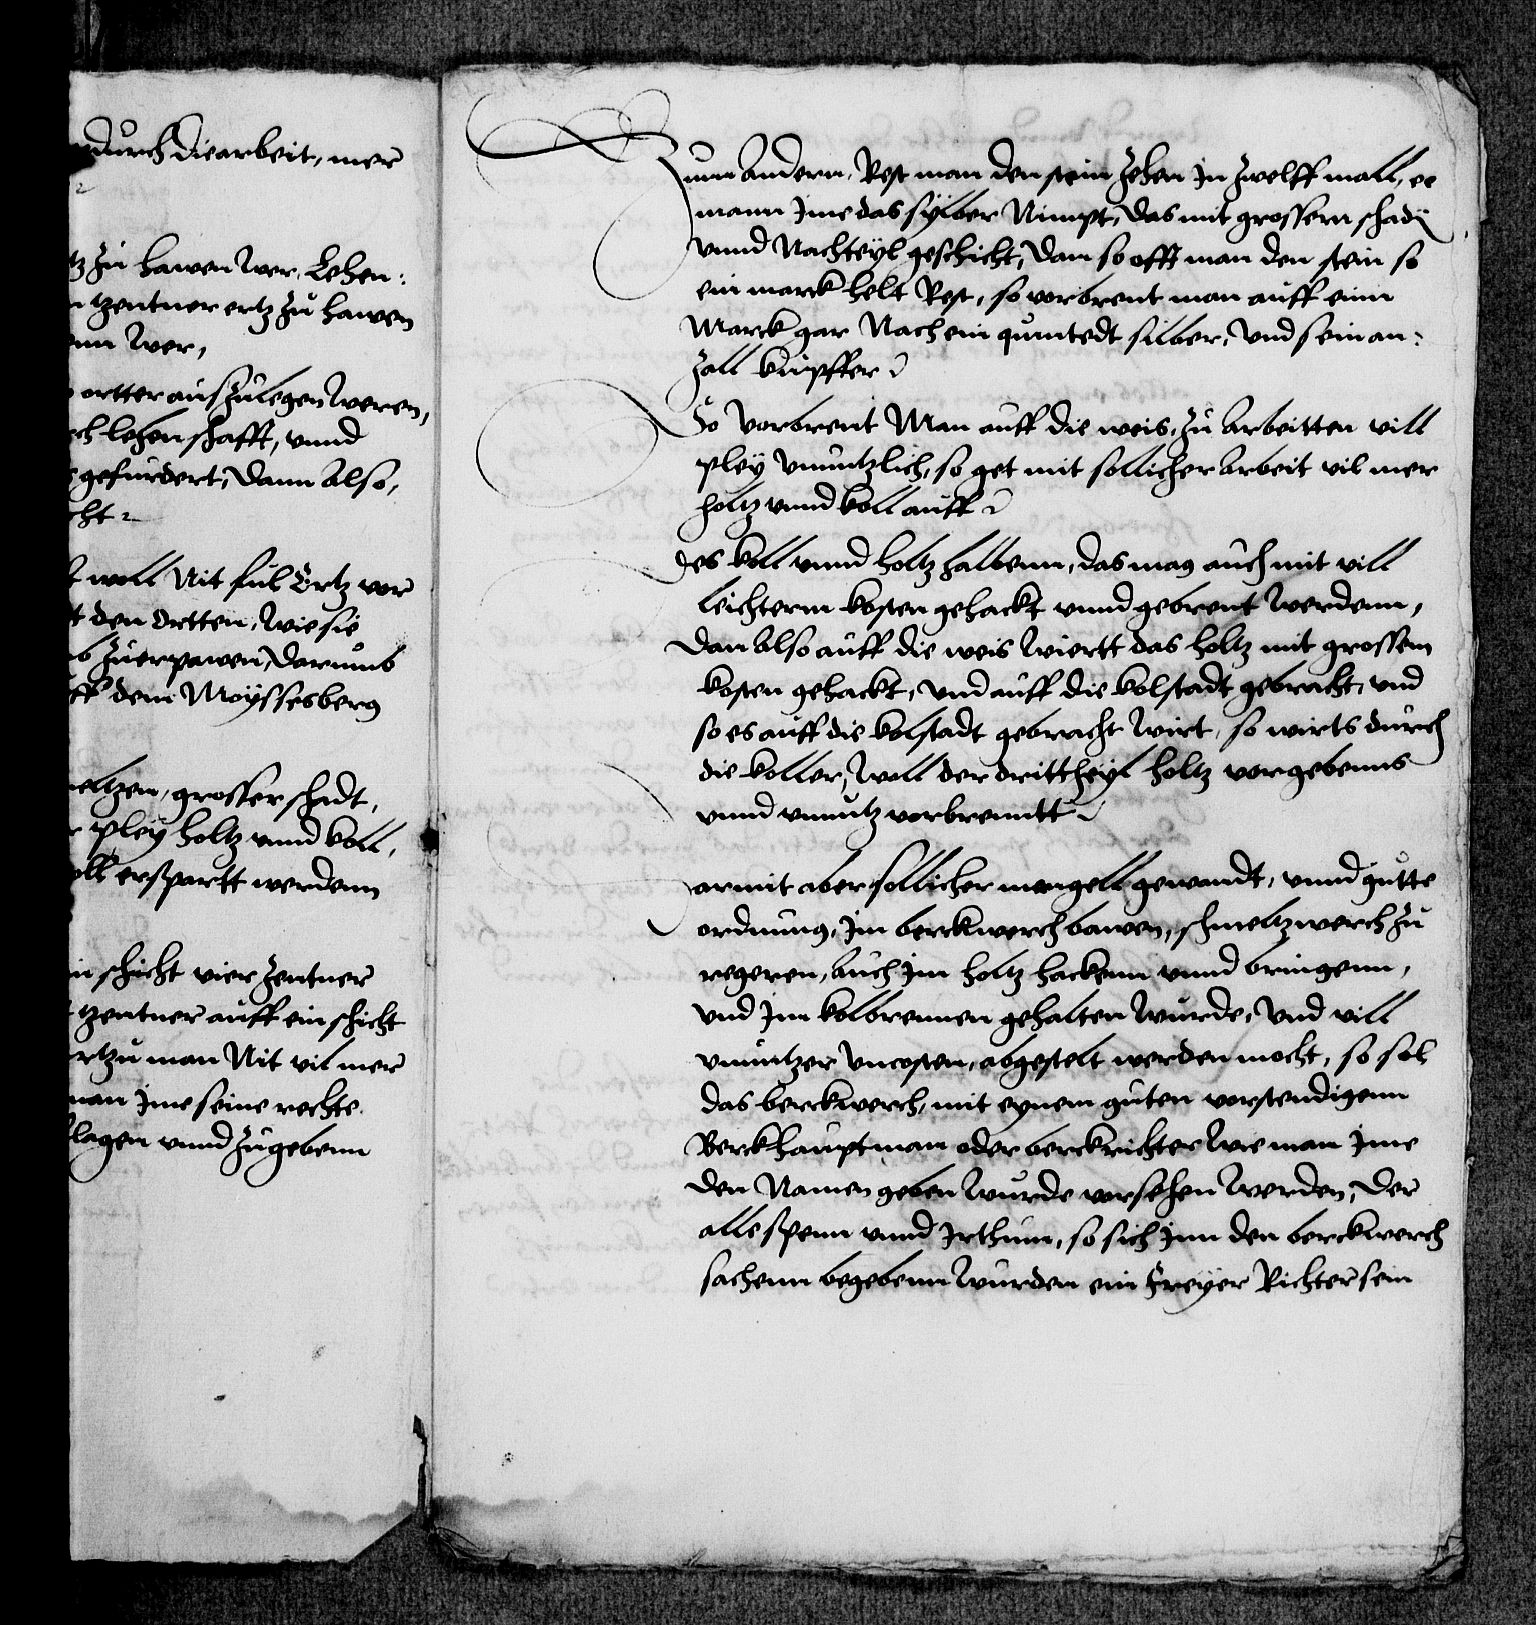 durch die arbeit, mer
tz zu hawen wer, Lehen:
n tzentner ertz zu hawen
nn wer,
ortter auszulegen weren,
ch lehenschafft, vnnd
gefurdert, dann also,
cht
woll Nit sul Ertz vor
t den Ortten, wie sie
zuerpawen, darumb
ff dem Moyssesberg
eltzen, grosser schadt,
r pley holtz vnnd koll,
oll erspartt werdenn
in schicht vier Zentner
tzentner auff ein schicht
rtzu man Nit vil mer
man jme seine rechte
lagen vnnd zugebenn
Zum Andern, Rest man den stein zehen jn zwelff mall, ee
mann jme das sylber Nimpt, das mit grossern schad
vnnd Nachteyl geschicht, dan so offt man den stein so
ein marck helt Rest, so vorbrent man auff einn
Marck gar Nach ein quintedt silber, vnd sein an:
zall kupffer
So vorbrent Man auff die weis, zu Arbeitten vill
pley vnnutzlich, so get mit sollicher Arbeit vil mer
holtz vnnd koll auff
Des koll vnnd holtz halbenn, das mag auch mit vill
leichterm kosten gehackt vnnd gebrent werdenn,
Dan also auff die weis wiertt das holtz mit grossem
kosten gehackt, vnd auff die kolstadt gebracht, vnd
so es auff die kolstadt gebracht wirt, so wirts durch
die koller, woll der drittheyl holtz vorgebenns
vnnd vnnutz vorbrenntt
Darmit aber sollicher mangell gewandt, vnnd gutte
ordnung, jm berckwerch bawen, schmeltzwerch zu
regeren, auch jm holtz hackenn vnnd bringenn,
vnd jm kolbrennen gehalten wurde, vnd vill
vnnutzer vncosten, abgestelt werden mocht, so sol
das berckwerch, mit eynem guten vorstendigenn
Berckhauptman oder berckrichter wie man jme
den Namen geben wurde vorsehen werden, der
alle spenn vnnd jrthum, so sich jnn den berckwerch
sachenn begebenn wurden ein freyer Richter sein